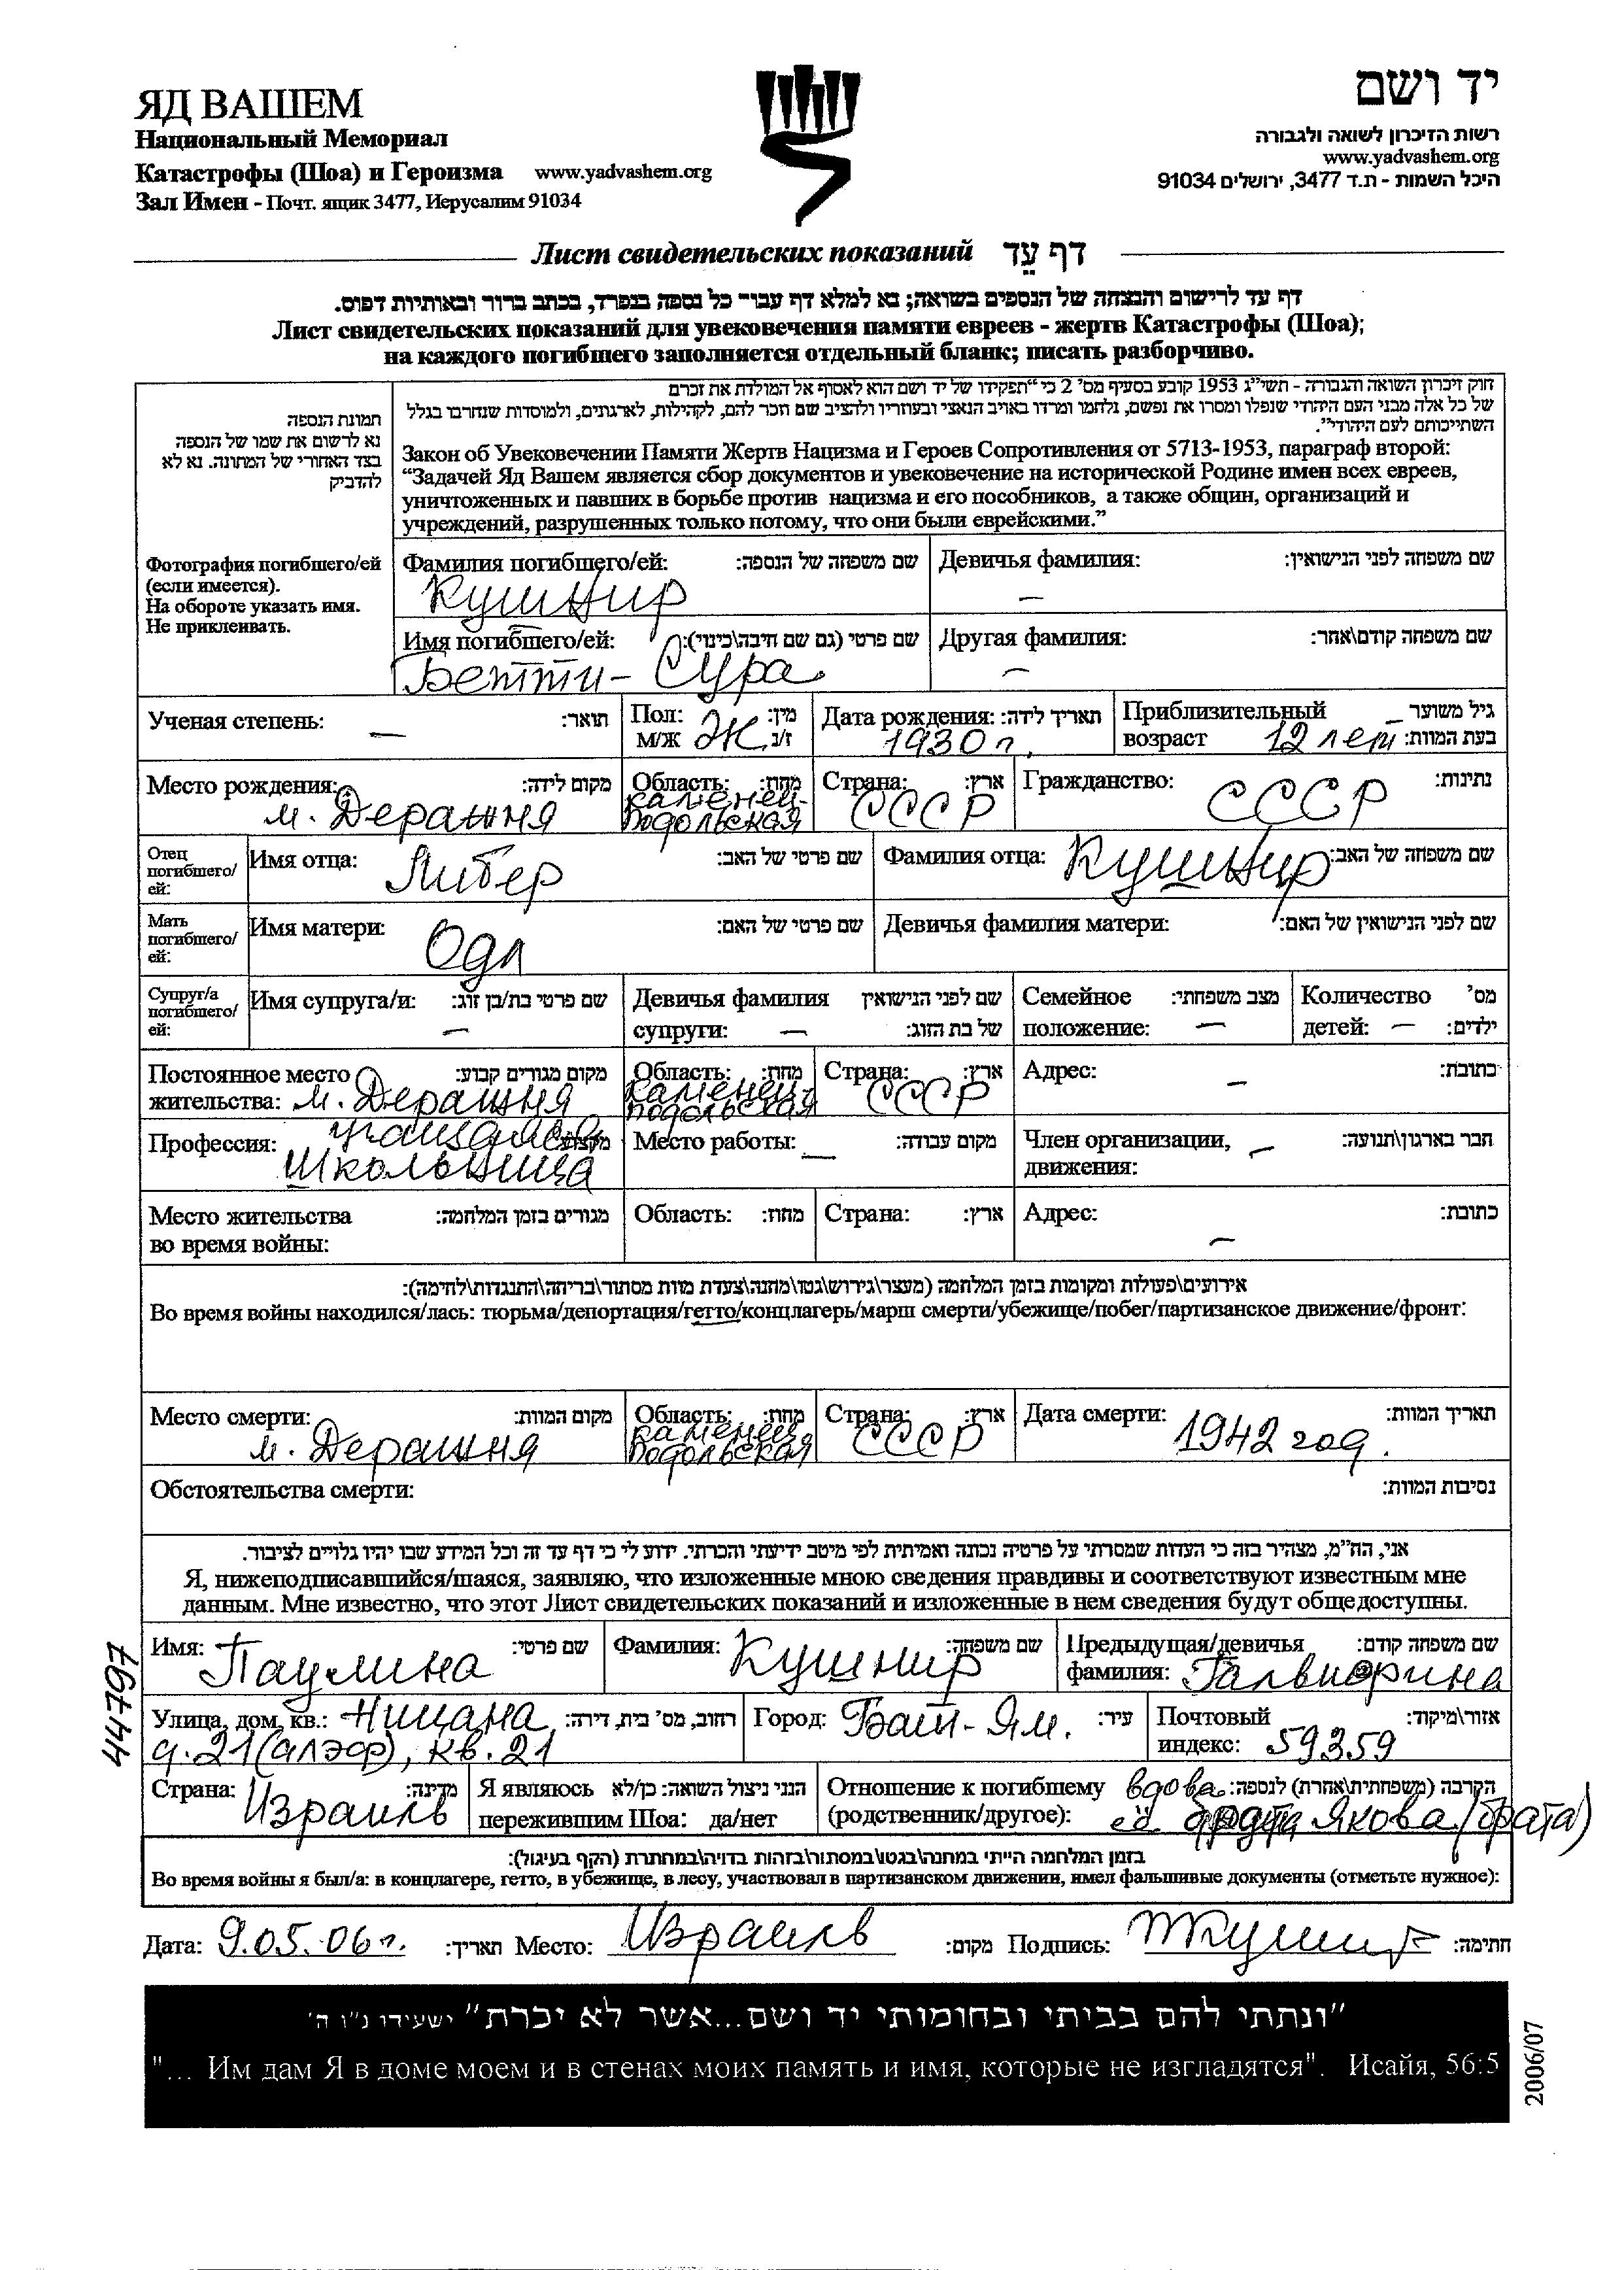 ЯД ВАШЕМ
Национальный Мемориал
Катастрофы (Шоа) и Героизма www.yadvashem.org
Зал Имен - Почт. ящик 3477, Иерусалим 91034
יד ושם
רשות הזיכרון לשואה ולגבורה
www.yadvashem.org
היכל השמות - ת.ד 3477, ירושלים 91034
Лист свидетельских показаний דף עֵד
דף עד לרישום והנצחה של הנספים בשואה; נא למלא דף עבור כל נספה בנפרד, בכתב ברור ובאותיות דפוס.
Лист свидетельских показаний для увековечения памяти евреев - жертв Катастрофы (Шоа);
на каждого погибшего заполняется отдельный бланк; писать разборчиво.
תמונת הנספה
נא לרשום את שמו של הנספה
בצד האחורי של התמונה. נא לא
להדביק
Фотография погибшего/ей
(если имеется).
На обороте указать имя.
Не приклеивать.
חוק זיכרון השואה והגבורה - תשי"ג 1953 קובע בסעיף מס' 2 כי "תפקידו של יד ושם הוא לאסוף אל המולדת את זכרם
של כל אלה מבני העם היהודי שנפלו ומסרו את נפשם, נלחמו ומרדו באויב הנאצי ובעוזריו ולהציב שם וזכר להם, לקהילות, לארגונים, ולמוסדות שנחרבו בגלל
השתייכותם לעם היהודי".
Закон об Увековечении Памяти Жертв Нацизма и Героев Сопротивления от 5713-1953, параграф второй:
"Задачей Яд Вашем является сбор документов и увековечение на исторической Родине имен всех евреев,
уничтоженных и павших в борьбе против нацизма и его пособников, а также общин, организаций и
учреждений, разрушенных только потому, что они были еврейскими."
Фамилия погибшего/ей: שם משפחה של הנספה: Девичья фамилия: שם משפחה לפני הנישואין:
Кушнир –
Имя погибшего/ей: שם פרטי (גם שם חיבה\כינוי): Другая фамилия: שם משפחה קודם\אחר:
Бетти - Сура –
Ученая степень: – תואר: Пол: м/ж Ж מין: ז/נ Дата рождения: תאריך לידה: 1930 г. Приблизительный возраст 12 лет גיל משוער בעת המוות:
Место рождения: מקום לידה: Область: מחוז: Страна: ארץ: Гражданство: נתינות:
м. Деражня Каменец-Подольская СССР СССР
Отец погибшего/ей: Имя отца: Либер שם פרטי של האב: Фамилия отца: Кушнир שם משפחה של האב:
Мать погибшего/ей: Имя матери: Одл שם פרטי של האם: Девичья фамилия матери: שם לפני הנישואין של האם:
Супруг/а погибшего/ей: Имя супруга/и: – שם פרטי בת/בן זוג: Девичья фамилия супруги: – שם לפני הנישואין של בת הזוג: Семейное положение: – מצב משפחתי: Количество детей: – מס' ילדים:
Постоянное место жительства: м. Деражня מקום מגורים קבוע: Область: Каменец-Подольская מחוז: Страна: СССР ארץ: Адрес: – כתובת:
Профессия: учащаяся школьница מקצוע: Место работы: – מקום עבודה: Член организации, движения: – חבר בארגון\תנועה:
Место жительства во время войны: מגורים בזמן המלחמה: Область: מחוז: Страна: ארץ: Адрес: – כתובת:
אירועים\פעולות ומקומות בזמן המלחמה (מעצר\גירוש\גטו\מחנה\צעדת מוות מסתור\בריחה\התנגדות\לחימה):
Во время войны находился/лась: тюрьма/депортация/гетто/концлагерь/марш смерти/убежище/побег/партизанское движение/фронт:
Место смерти: м. Деражня מקום המוות: Область: Каменец-Подольская מחוז: Страна: СССР ארץ: Дата смерти: 1942 год. תאריך המוות:
Обстоятельства смерти: נסיבות המוות:
אני, הח"מ, מצהיר בזה כי העדות שמסרתי על פרטיה נכונה ואמיתית לפי מיטב ידיעתי והכרתי. ידוע לי כי דף עד זה וכל המידע שבו יהיו גלויים לציבור.
Я, нижеподписавшийся/шаяся, заявляю, что изложенные мною сведения правдивы и соответствуют известным мне
данным. Мне известно, что этот Лист свидетельских показаний и изложенные в нем сведения будут общедоступны.
Имя: Паулина שם פרטי: Фамилия: Кушнир שם משפחה: Предыдущая/девичья фамилия: שם משפחה קודם:
Улица, дом, кв.: Ницана, д. 21 (алэф), кв. 21 רחוב, מס' בית, דירה: Город: Бат-Ям. עיר: Почтовый индекс: 59359 אזור\מיקוד:
Страна: Израиль מדינה: Я являюсь пережившим Шоа: да/нет הנני ניצול השואה: כן/לא Отношение к погибшему (родственник/другое): הקרבה (משפחתית\אחרת) לנספה: вдова её брата Якова (брата)
בזמן המלחמה הייתי במחנה\בגטו\במסתור\בזהות בדויה\במחתרת (הקף בעיגול):
Во время войны я был/а: в концлагере, гетто, в убежище, в лесу, участвовал в партизанском движении, имел фальшивые документы (отметьте нужное):
Дата: 9.05.06 г. תאריך: Место: Израиль מקום: Подпись: ПКушнир חתימה:
"ונתתי להם בביתי ובחומותי יד ושם...אשר לא יכרת" ישעיהו נ"ו ה'
"... Им дам Я в доме моем и в стенах моих память и имя, которые не изгладятся". Исайя, 56:5
44797
2006/07